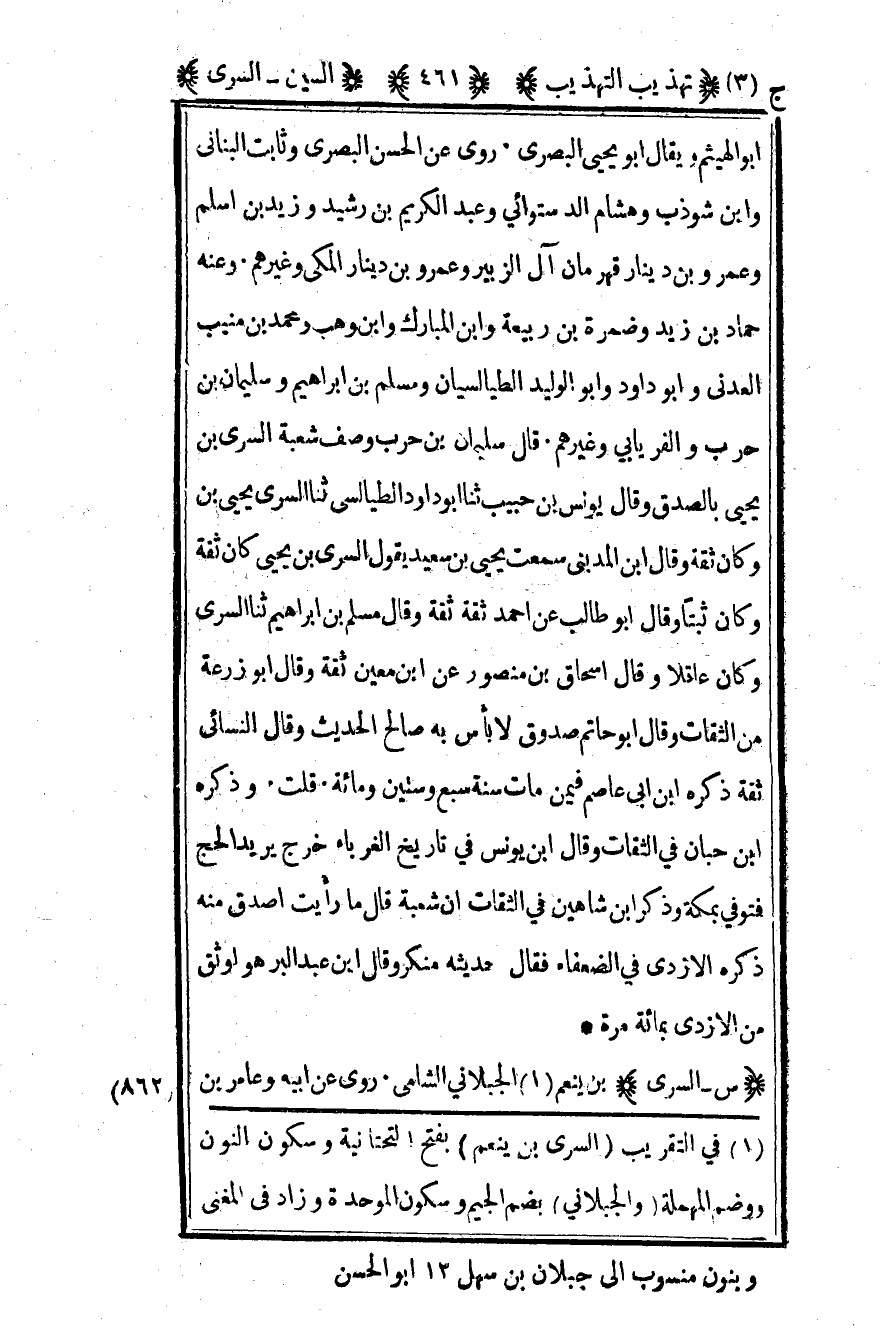 ج (٣) ﴿ تهذيب التهذيب ﴾ ﴿ ٤٦١ ﴾ ﴿ السين ـ السرى ﴾
ابو الهيثم ويقال ابو يحيى البصرى ٠ روى عن الحسن البصرى وثابت البنانى
وابن شوذب وهشام الدستوائي وعبد الكريم بن رشيد وزيد بن اسلم
وعمرو بن دينار قهرمان آل الزبير وعمرو بن دينار المكى وغيرهم ٠ وعنه
حماد بن زيد وضمرة بن ربيعة وابن المبارك وابن وهب ومحمد بن منيب
العدنى وابو داود وابو الوليد الطيالسيان ومسلم بن ابراهيم وسليمان بن
حرب والفريابي وغيرهم ٠ قال سليمان بن حرب وصف شعبة السرى بن
يحيى بالصدق وقال يونس بن حبيب ثنا ابو داود الطيالسى ثنا السرى يحيى بن
وكان ثقة وقال ابن المدينى سمعت يحيى بن سعيد يقول السرى بن يحيى كان ثقة
وكان ثبتاً وقال ابو طالب عن احمد ثقة ثقة وقال مسلم بن ابراهيم ثنا السرى
وكان عاقلا وقال اسحاق بن منصور عن ابن معين ثقة وقال ابو زرعة
من الثقات وقال ابو حاتم صدوق لا بأس به صالح الحديث وقال النسائى
ثقة ذكره ابن ابي عاصم فيمن مات سنة سبع وستين ومائة ٠ قلت ٠ وذكره
ابن حبان في الثقات وقال ابن يونس في تاريخ الغرباء خرج يريد الحج
فتوفي بمكة وذكر ابن شاهين في الثقات ان شعبة قال ما رأيت اصدق منه
ذكره الازدى في الضعفاء فقال حديثه منكر وقال ابن عبد البر هو اوثق
من الازدى بمائة مرة *
﴿ س ـ السرى ﴾ بن ينعم (١) الجبلاني الشامى ٠ روى عن ابيه وعامر بن (٨٦٢)
(١) في التقريب (السرى بن ينعم) بفتح التحتانية وسكون النون
ووضم المهملة (والجبلاني) بضم الجيم وسكون الموحدة وزاد فى المغنى
وبنون منسوب الى جبلان بن سهل ١٢ ابو الحسن